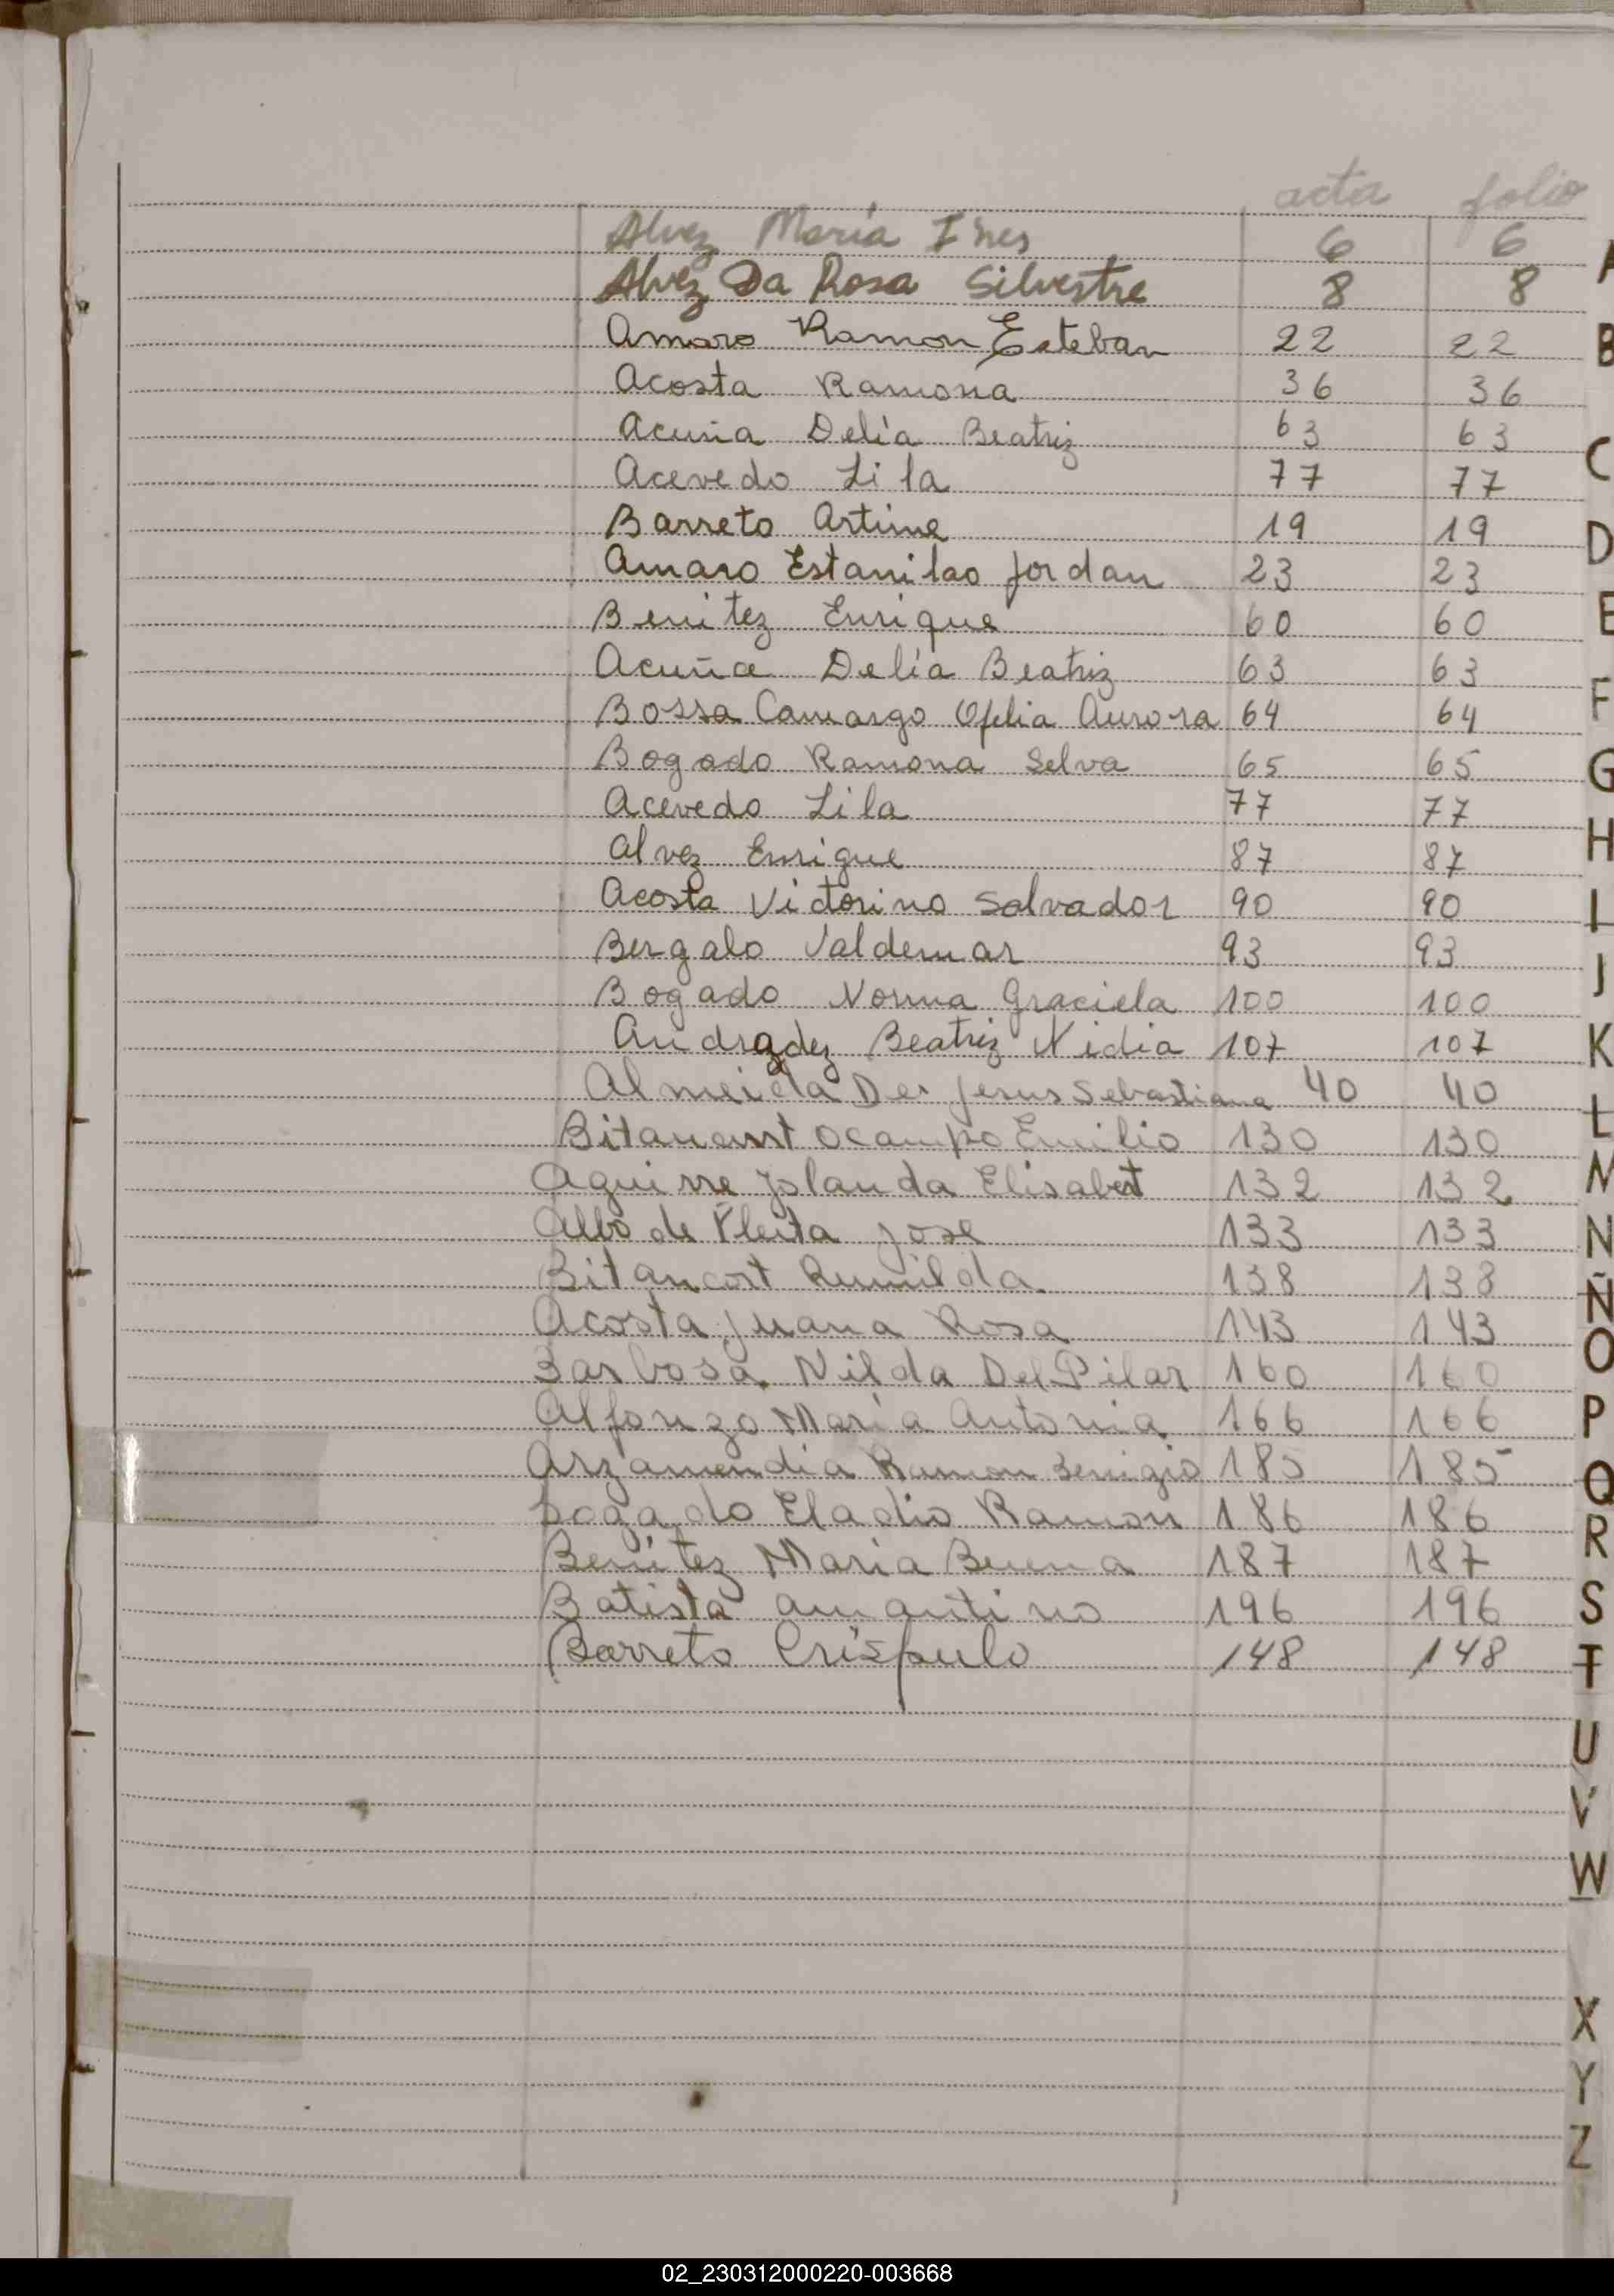 acta folio
Alvez María Ines 6 6
Alvez Da Rosa Silvestre 8 8
Amaro Ramon Esteban 22 22
Acosta Ramona 36 36
Acuña Delia Beatriz 63 63
Acevedo Lila 77 77
Barreto Artime 19 19
Amaro Estanilao Jordan 23 23
Benitez Enrique 60 60
Acuña Delia Beatriz 63 63
Bossa Camargo Ofelia Aurora 64 64
Bogado Ramona Selva 65 65
Acevedo Lila 77 77
Alvez Enrique 87 87
Acosta Victorino Salvador 90 90
Bergalo Valdemar 93 93
Bogado Norma Graciela 100 100
Andradez Beatriz Nidia 107 107
Almeida De Jesus Sebastiana 40 40
Ocampo Emilio 130 130
Aguirre Yolanda Elisabet 132 132
Albo de Fleita Jose 133 133
Bitancort Rumilda 138 138
Acosta Juana Rosa 143 143
Barbosa Nilda Del Pilar 160 160
Alfonzo Maria Antonia 166 166
Arzamendia Ramon Benigio 185 185
Bogado Eladio Ramon 186 186
Benitez Maria Buena 187 187
Batista Amantino 196 196
Barreto Crispulo 148 148
A
B
C
D
E
F
G
H
I
J
K
L
M
N
Ñ
O
P
Q
R
S
T
U
V
W
X
Y
Z
02_230312000220-003668